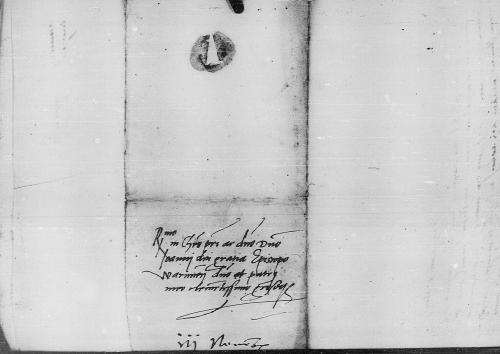 R^mo in Chro pri ac dno Dno
Joanni dei gratia Episcopo
Warmien Dno et patri
meo clementissimo
iij Novemb